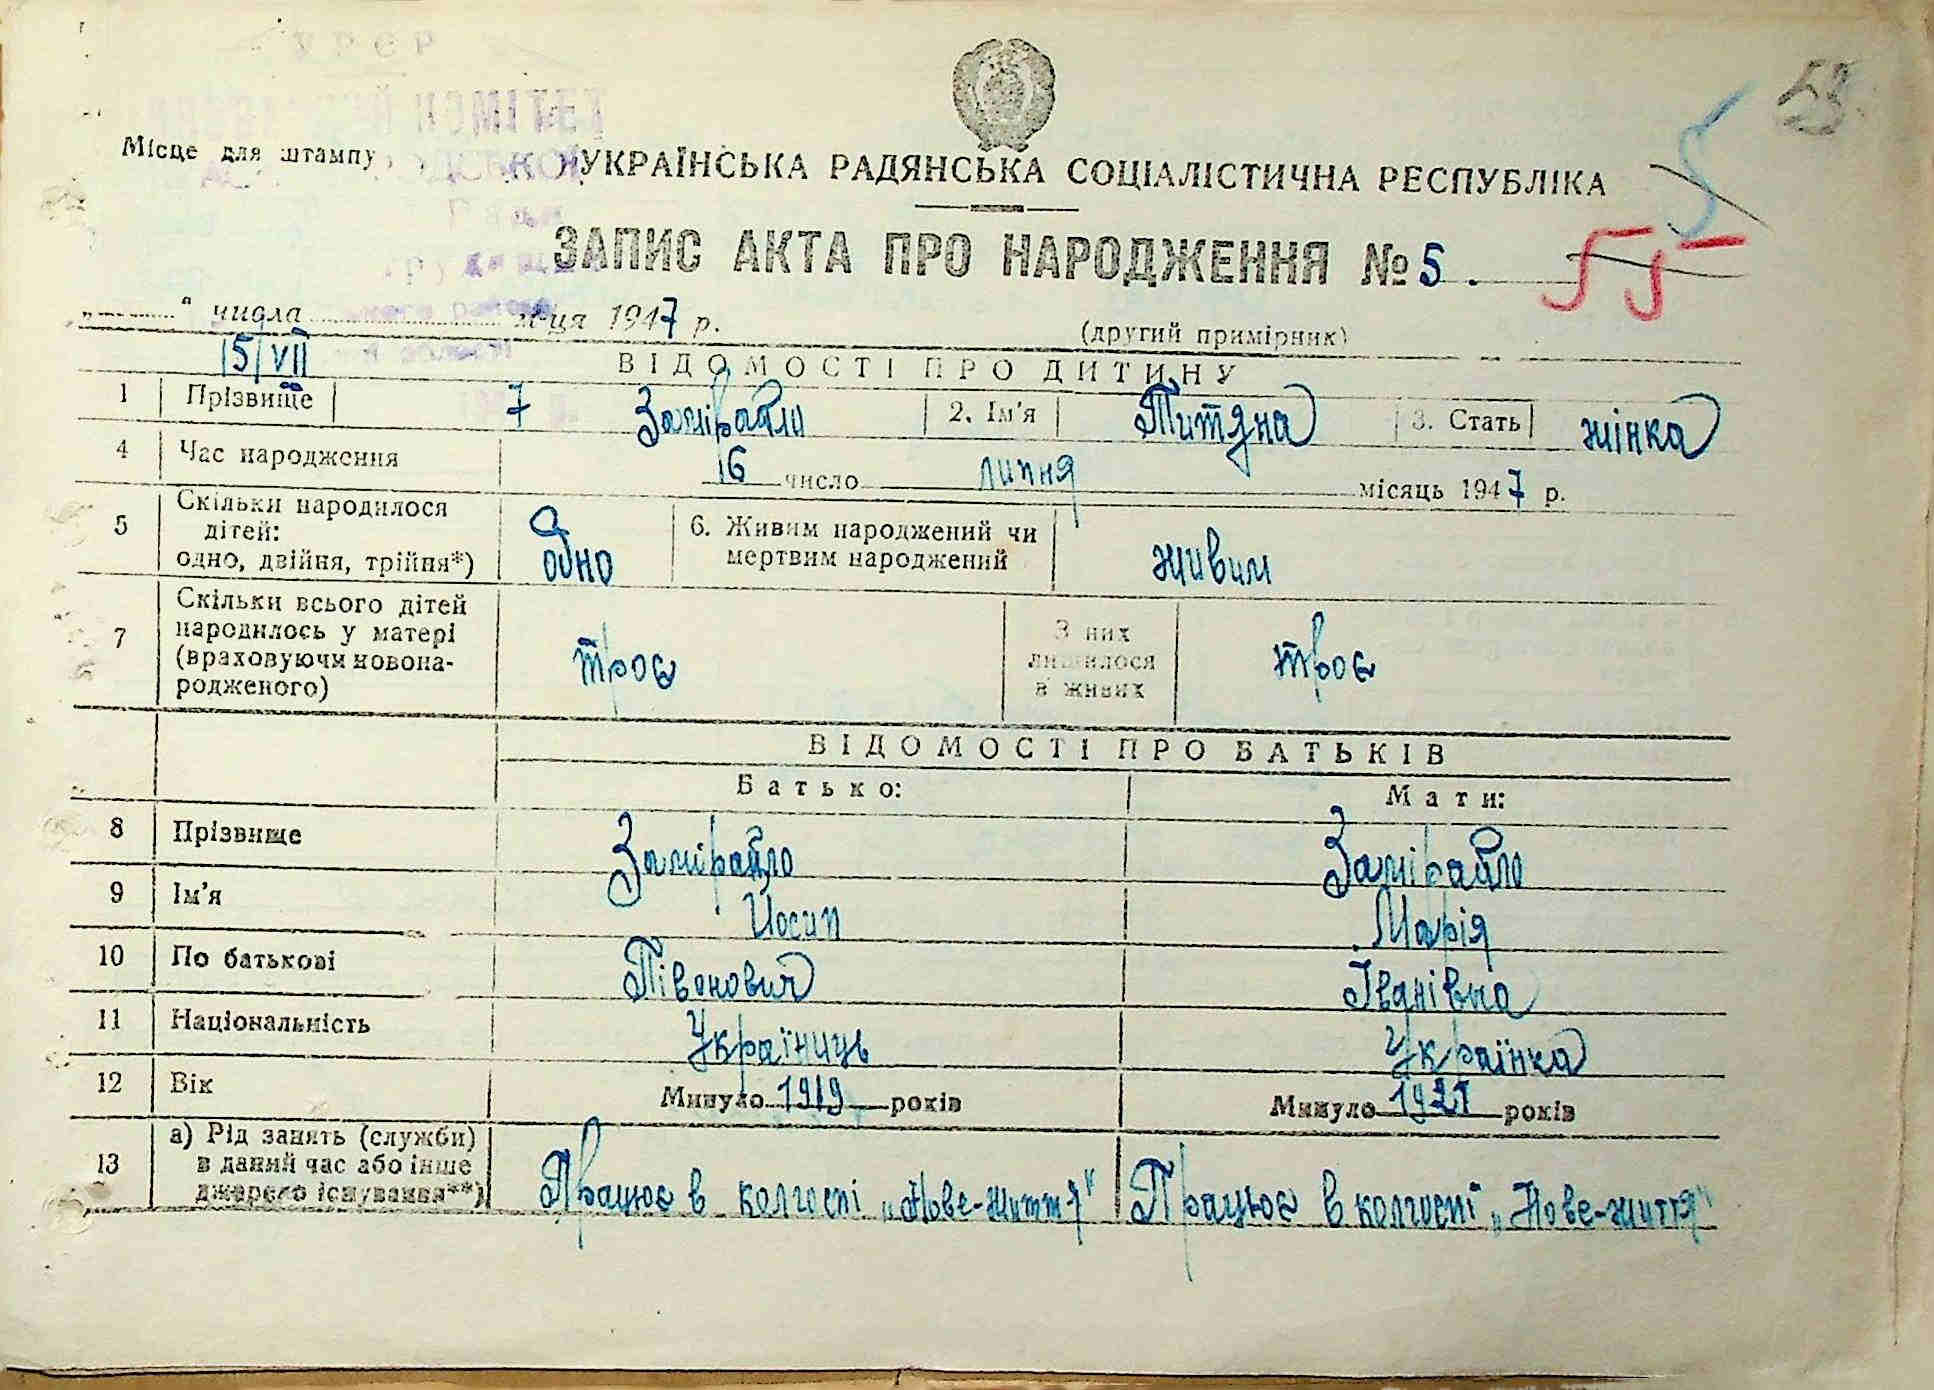 53
5
Місце для штампу
УКРАЇНСЬКА РАДЯНСЬКА СОЦІАЛІСТИЧНА РЕСПУБЛІКА
ЗАПИС АКТА ПРО НАРОДЖЕННЯ № 5.
55
„ “ числа м-ця 1947 р.
(другий примірник)
15/VII
ВІДОМОСТІ ПРО ДИТИНУ
1 Прізвище 7 Замірайло 2. Ім'я Титяна 3. Стать жінка
4 Час народження 16 число липня місяць 1947 р.
5 Скільки народилося дітей: одно, двійня, трійня*) одно 6. Живим народжений чи мертвим народжений живим
7 Скільки всього дітей народилось у матері (враховуючи новонародженого) троє З них лишилося в живих троє
ВІДОМОСТІ ПРО БАТЬКІВ
Батько: Мати:
8 Прізвище Замірайло Замірайло
9 Ім'я Йосип Марія
10 По батькові Півонович Іванівна
11 Національність Україниць Українка
12 Вік Минуло 1919 років Минуло 1921 років
13 а) Рід занять (служби) в даний час або інше джерело існування**) Працює в колгоспі „Нове-життя" Працює в колгоспі „Нове-життя"